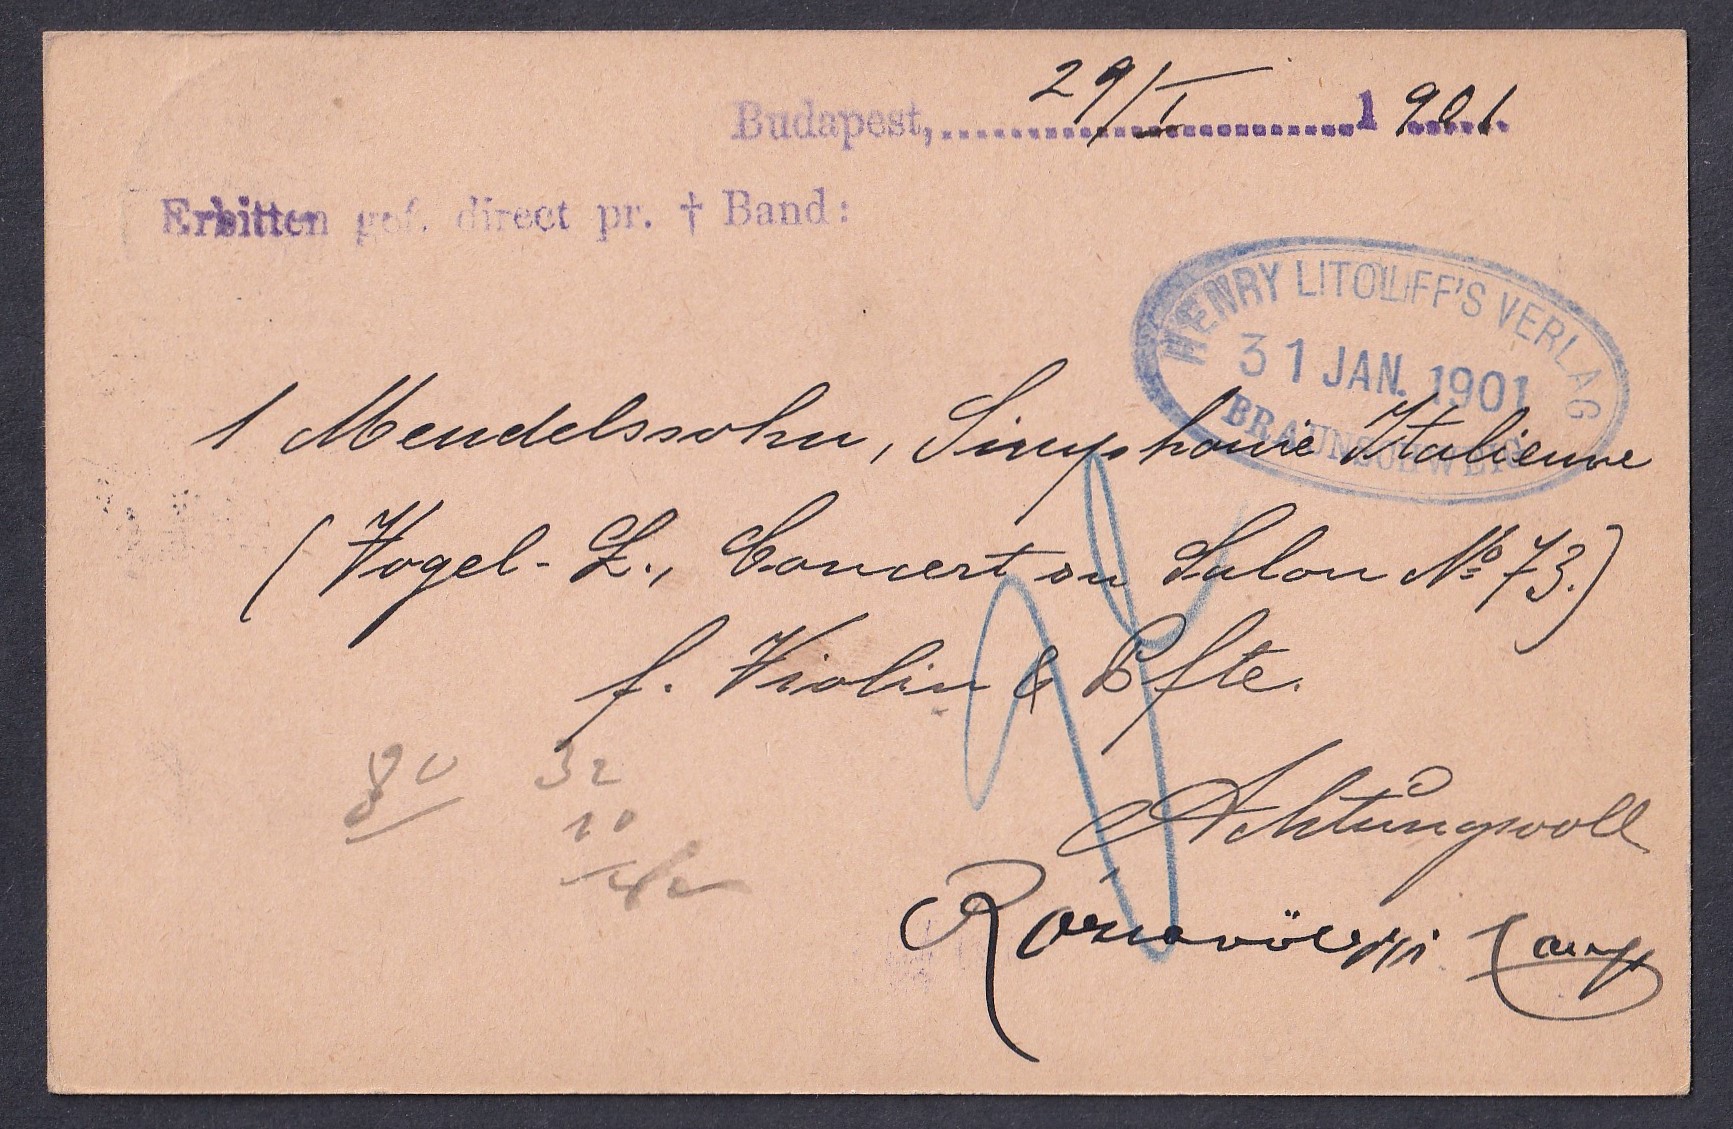 Budapest, 29/I 1901.
Erbitten gef. direct pr. † Band:
HENRY LITOLFF'S VERLAG
31 JAN. 1901
BRAUNSCHWEIG
1 Mendelssohn, Simphonie Italienne
(Vogel-L., Concert au Salon No 73.)
f. Violin & Pfte.
80 32
10
42
Achtungsvoll
Rózsavölgyi